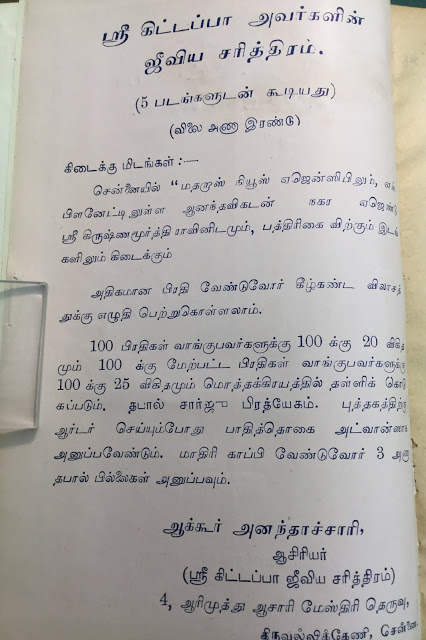 ஸ்ரீ கிட்டப்பா அவர்களின்
ஜீவிய சரித்திரம்.
(5 படங்களுடன் கூடியது)
(விலை அணா இரண்டு)
கிடைக்கு மிடங்கள் :—
சென்னையில் “மதராஸ் நியூஸ் ஏஜென்ஸியிலும்,
பிளனேட்டிலுள்ள ஆனந்தவிகடன் நகர ஏஜெண்டு
ஸ்ரீ கிருஷ்ணமூர்த்தி ராவினிடமும், பத்திரிகை விற்கும் இடங்
களிலும் கிடைக்கும்
அதிகமான பிரதி வேண்டுவோர் கீழ்கண்ட விலாசத்
துக்கு எழுதி பெற்றுகொள்ளலாம்.
100 பிரதிகள் வாங்குபவர்களுக்கு 100 க்கு 20 விகித
மும் 100 க்கு மேற்பட்ட பிரதிகள் வாங்குபவர்களுக்கு
100 க்கு 25 விகிதமும் மொத்தக்கிரயத்தில் தள்ளிக் கொடு
கப்படும். தபால் சார்ஜு பிரத்யேகம். புத்தகத்திற்கு
ஆர்டர் செய்யும்போது பாதித்தொகை அட்வான்ஸாக
அனுப்பவேண்டும். மாதிரி காப்பி வேண்டுவோர் 3 அணா
தபால் பில்லைகள் அனுப்பவும்.
ஆக்கூர் அனந்தாச்சாரி,
ஆசிரியர்
(ஸ்ரீ கிட்டப்பா ஜீவிய சரித்திரம்)
4, ஆரிமுத்து ஆசாரி மேஸ்திரி தெருவு,
திருவல்லிக்கேணி, சென்னை.